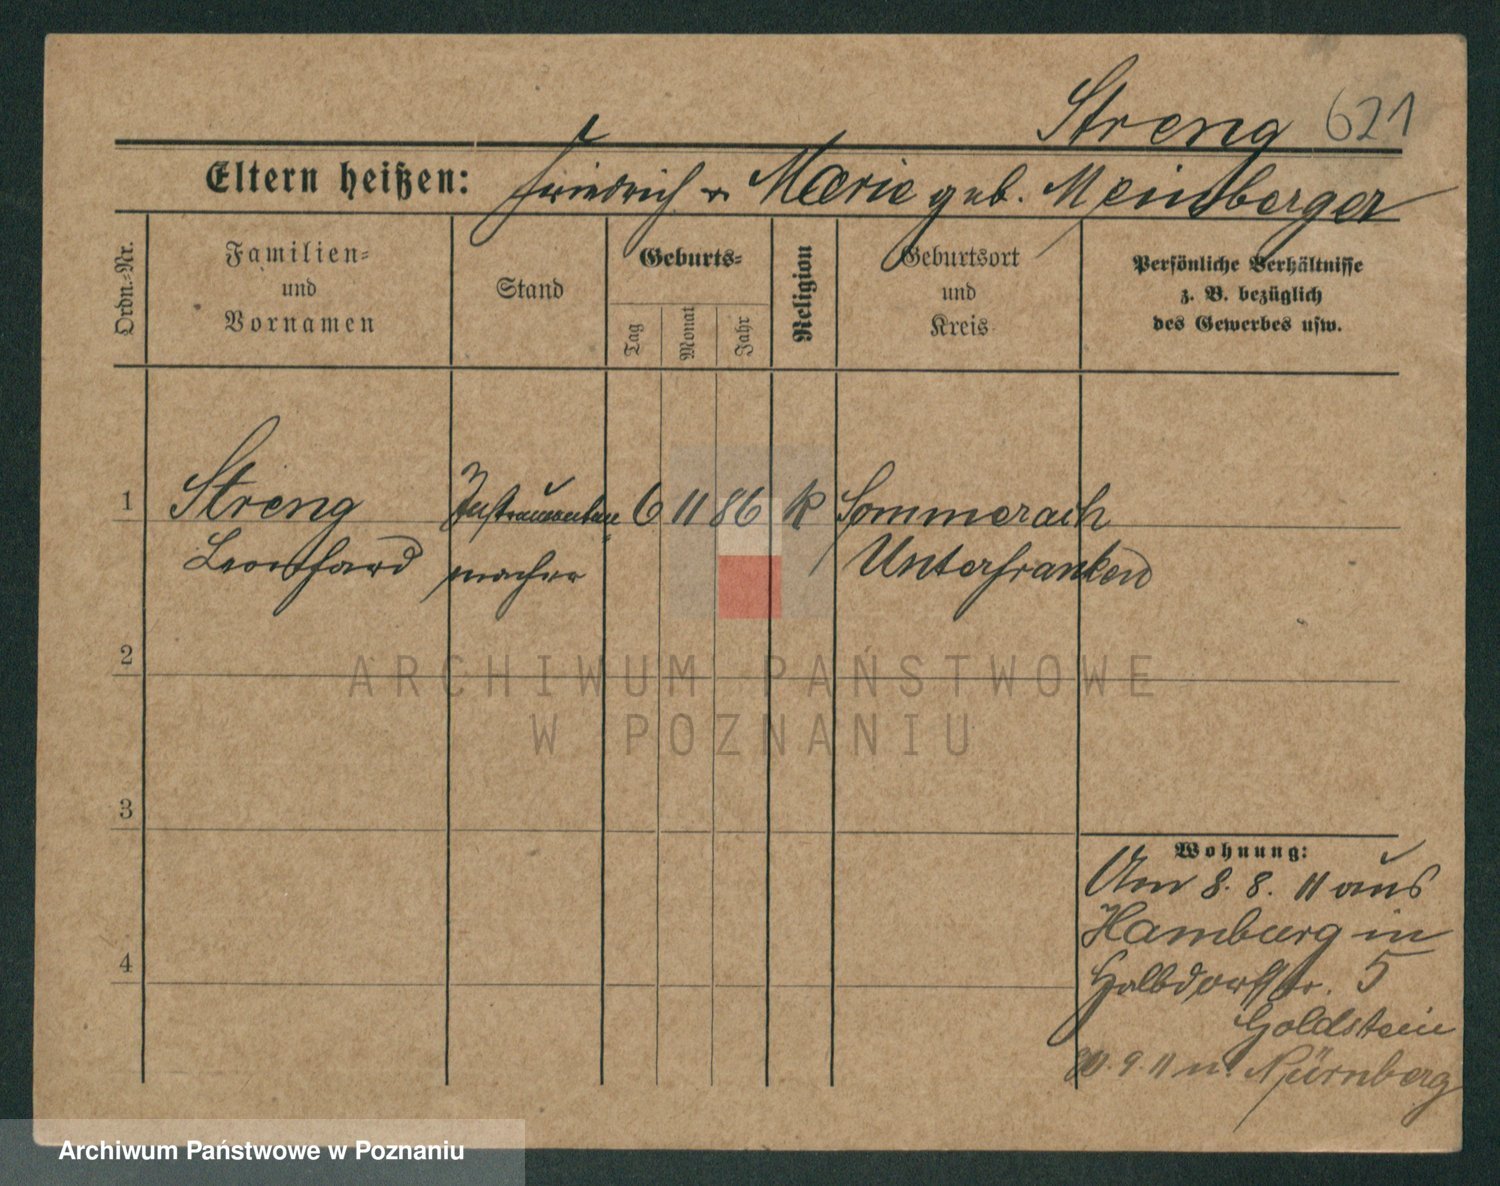 Streng 621
Eltern heißen: Friedrich u. Marie geb. Meinberger
Ordn.-Nr.
Familien-
und
Vornamen
Stand
Geburts-
Tag
Monat
Jahr
Religion
Geburtsort
und
Kreis
Persönliche Verhältnisse
z. B. bezüglich
des Gewerbes usw.
1 Streng Instrumenten 6 11 86 k Sommerach
Leonhard macher Unterfranken
2
3
4
Wohnung:
Am 8. 8. 11 aus
Hamburg in
Halbdorfstr. 5
Goldstein
9. 11 n. Nürnberg
ARCHIWUM PAŃSTWOWE
W POZNANIU
Archiwum Państwowe w Poznaniu